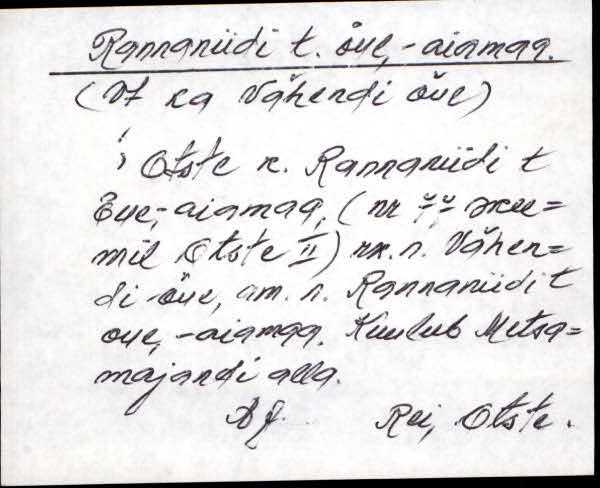 Rannaniidi t. õue, -aiamaa.
(Vt ka Vähendi õue)
Otste k. Rannaniidi t
õue, -aiamaa, (nr
mil Otste II) rk. n. Vähen=
di-õue, am. n. Rannaniidi t
oue, -aiamaa. Kuulub Metsa=
majandi alla.
Rei, Otste.